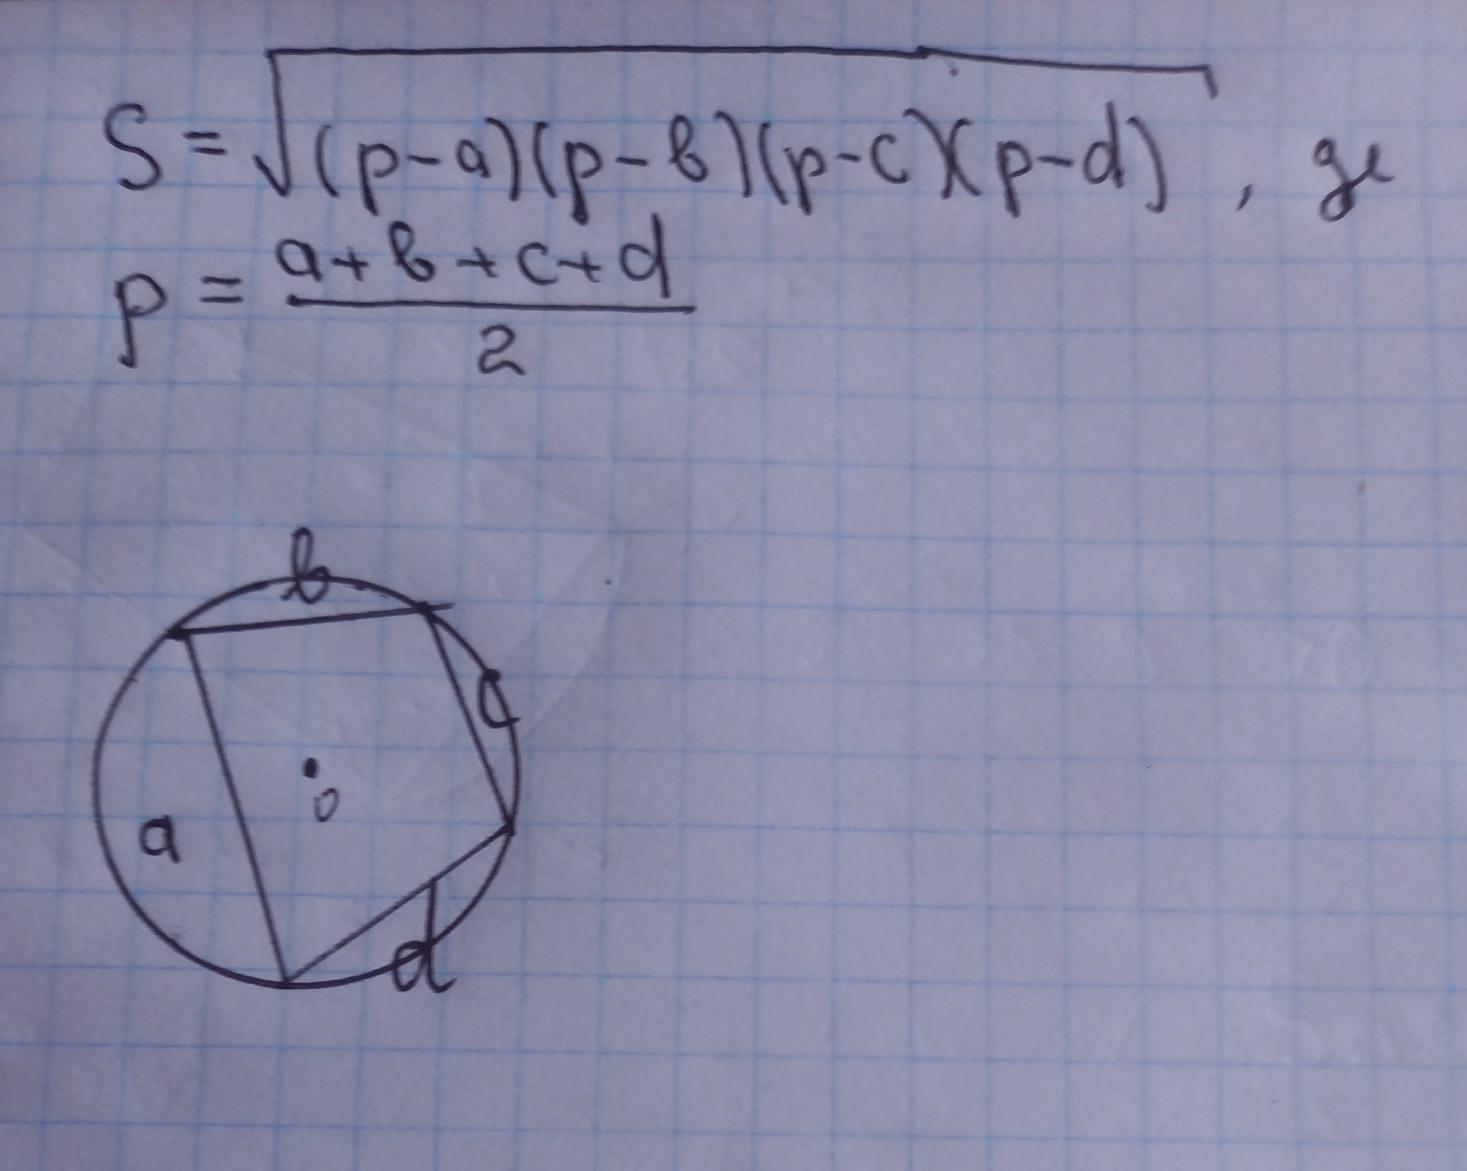 S = √(p-a)(p-b)(p-c)(p-d) , де
p = a+b+c+d / 2
b
c
o
a
d